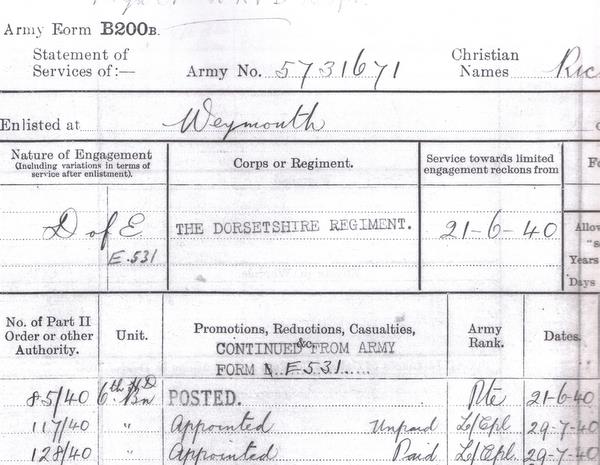 Army Form B200B.
Statement of Services of:— Army No. 5731671 Christian Names Ric
Enlisted at Weymouth
Nature of Engagement Corps or Regiment. Service towards limited
(Including variations in terms of engagement reckons from
service after enlistment).
D of E THE DORSETSHIRE REGIMENT. 21-6-40 Allow
E.531 Years
Days
No. of Part II Promotions, Reductions, Casualties, Army
Order or other Unit. &c. Rank. Dates.
Authority. CONTINUED FROM ARMY
FORM E.531
85/40 6th HD Bn POSTED. Pte 21-6-40
117/40 " Appointed Unpaid L/Cpl 29-7-40
128/40 " Appointed Paid L/Cpl. 29-7-40